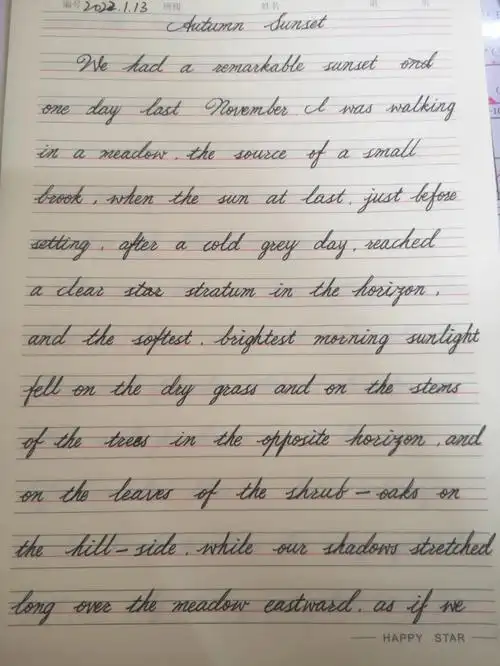 编号 2022.1.13
Autumn Sunset
We had a remarkable sunset and
one day last November I was walking
in a meadow, the source of a small
brook, when the sun at last, just before
setting, after a cold grey day, reached
a clear star stratum in the horizon,
and the softest, brightest morning sunlight
fell on the dry grass and on the stems
of the trees in the opposite horizon, and
on the leaves of the shrub-oaks on
the hill-side, while our shadows stretched
long over the meadow eastward, as if we
HAPPY STAR